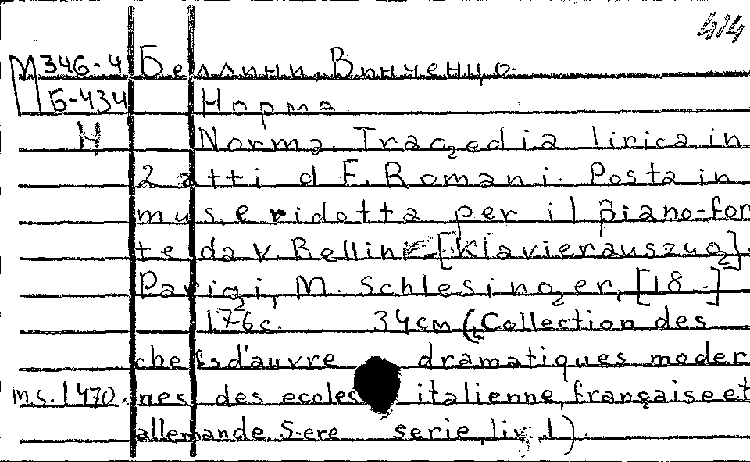 414
М 346-4 Беллини, Винченцо.
Б-434 Норма
Н Norma. Tragedia lirica in
2 atti d F. Romani. Posta in
mus. e ridotta per il piano-for
te da V. Bellini [Klavierauszug].
Parigi, M. Schlesinger, [18 ]
176c. 34cm (Collection des
chefs d'auvre dramatiques moder
м.с.1470. nes des ecoles italienne, française et
allemande, S-ere serie, liv. 1)